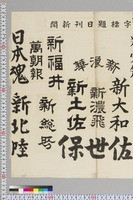 字標題日刊新聞
新大和
佐世保
新濃飛
新土佐
新総房
新福井
萬朝報
新北陸
日本魂